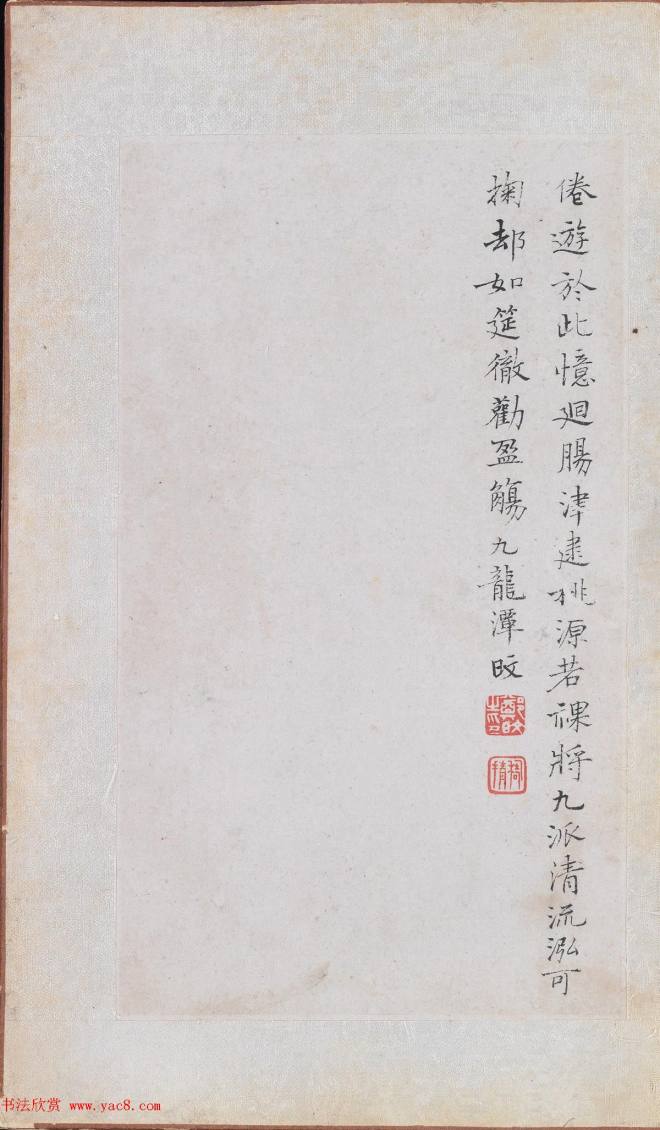 倦遊於此憶廻腸津逮桃源若祼將九派清流泓可
掬却如筵徹勸盈觴九龍潭旼
鄭旼
書法欣赏 www.yac8.com